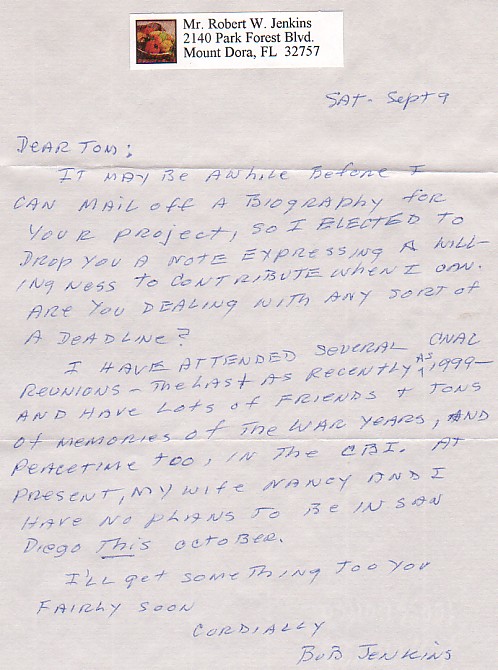 Mr. Robert W. Jenkins
2140 Park Forest Blvd.
Mount Dora, FL 32757
SAT- Sept 9
DEAR TOM:
IT MAY BE AWHILE BEFORE I
CAN MAIL OFF A BIOGRAPHY FOR
YOUR PROJECT, SO I ELECTED TO
DROP YOU A NOTE EXPRESSING A WILL-
ING NESS TO CONTRIBUTE WHEN I CAN.
ARE YOU DEALING WITH ANY SORT OF
A DEADLINE?
I HAVE ATTENDED SEVERAL CNAC
REUNIONS - THE LAST AS RECENTLY AS 1999-
AND HAVE LOTS OF FRIENDS + TONS
OF MEMORIES OF THE WAR YEARS, AND
PEACETIME TOO, IN THE CBI. AT
PRESENT, MY WIFE NANCY AND I
HAVE NO PLANS TO BE IN SAN
DIEGO THIS OCTOBER.
I'LL GET SOMETHING TOO YOU
FAIRLY SOON
CORDIALLY
BOB JENKINS